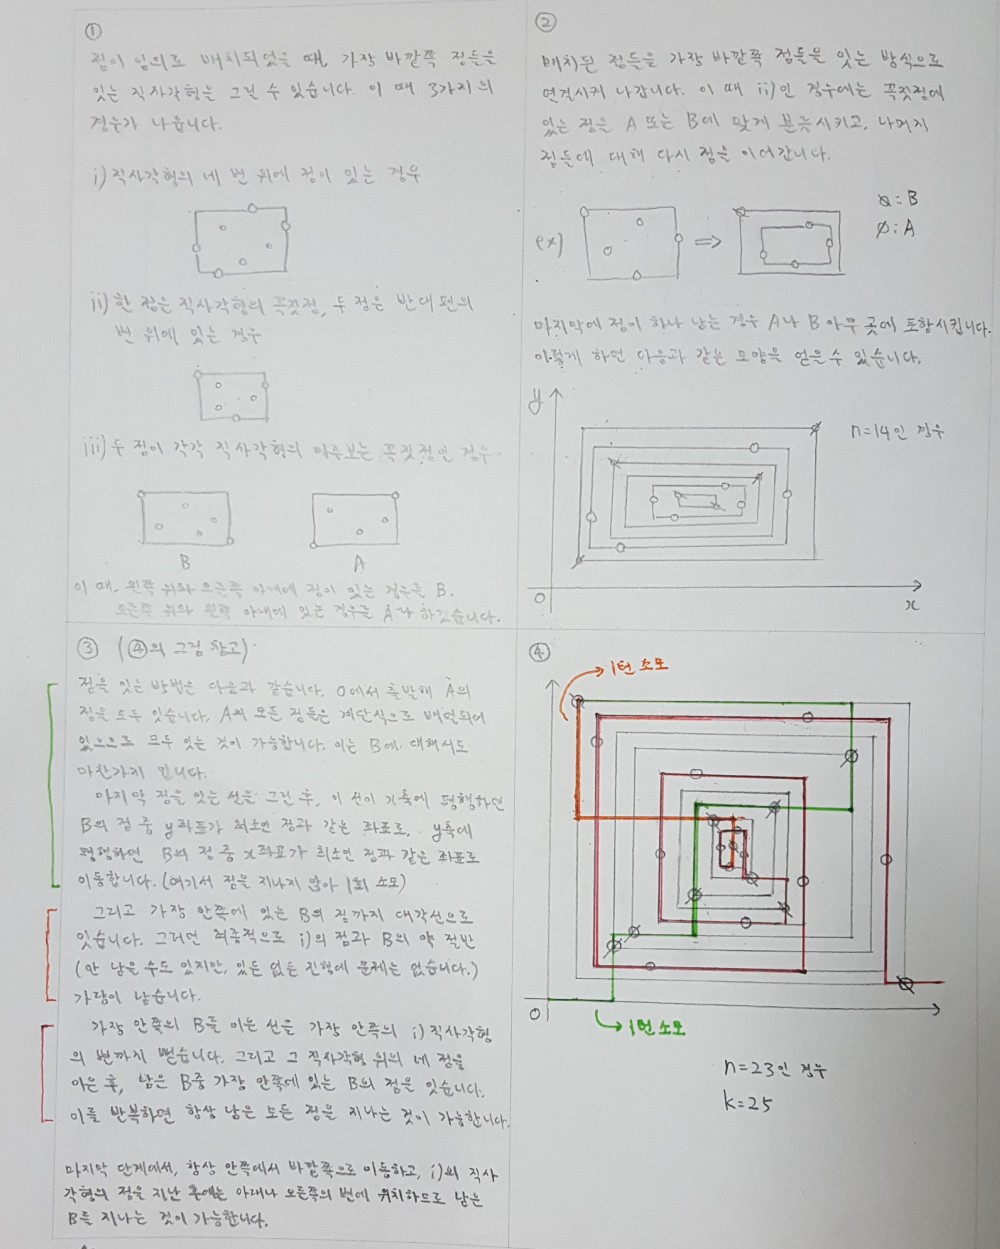 ①
점이 임의로 배치되었을 때, 가장 바깥쪽 점들을
잇는 직사각형을 그릴 수 있습니다. 이 때 3가지의
경우가 나옵니다.
i) 직사각형의 네 변 위에 점이 있는 경우
ii) 한 점은 직사각형의 꼭짓점, 두 점은 반대편의
변 위에 있는 경우
iii) 두 점이 각각 직사각형의 마주보는 꼭짓점인 경우.
B
A
이 때, 왼쪽 위와 오른쪽 아래에 점이 있는 경우를 B,
오른쪽 위와 왼쪽 아래에 있는 경우를 A라 하겠습니다.
②
배치된 점들을 가장 바깥쪽 점들을 잇는 방식으로
연결시켜 나갑니다. 이 때 ii)인 경우에는 꼭짓점에
있는 점을 A 또는 B에 맞게 분류시키고, 나머지
점들에 대해 다시 점을 이어갑니다.
: B
: A
ex)
마지막에 점이 하나 남는 경우 A나 B 아무 곳에 포함시킵니다.
이렇게 하면 다음과 같은 모양을 얻을 수 있습니다.
y
n=14인 경우
O
x
③ (④의 그림 참고)
점을 잇는 방법은 다음과 같습니다. O에서 출발해 A의
점을 모두 잇습니다. A의 모든 점들은 계단식으로 배열되어
있으므로 모두 잇는 것이 가능합니다. 이는 B에 대해서도
마찬가지 입니다.
마지막 점을 잇는 선을 그린 후, 이 선이 x축에 평행하면
B의 점 중 y좌표가 최소인 점과 같은 좌표로, y축에
평행하면 B의 점 중 x좌표가 최소인 점과 같은 좌표로
이동합니다. (여기서 점을 지나지 않아 1회 소모)
그리고 가장 안쪽에 있는 B의 점까지 대각선으로
잇습니다. 그러면 최종적으로 i)의 점과 B의 약 절반
(안 남을 수도 있지만, 있든 없든 진행에 문제는 없습니다.)
가량이 남습니다.
가장 안쪽의 B를 이은 선을 가장 안쪽의 i) 직사각형
의 변까지 뻗습니다. 그리고 그 직사각형 위의 네 점을
이은 후, 남은 B중 가장 안쪽에 있는 B의 점을 잇습니다.
이를 반복하면 항상 남은 모든 점을 지나는 것이 가능합니다.
마지막 단계에서, 항상 안쪽에서 바깥쪽으로 이동하고, i)의 직사
각형의 점을 지난 후에는 아래나 오른쪽의 변에 위치하므로 남은
B를 지나는 것이 가능합니다.
④
1턴 소모
O
1턴 소모
n=23인 경우
k=25